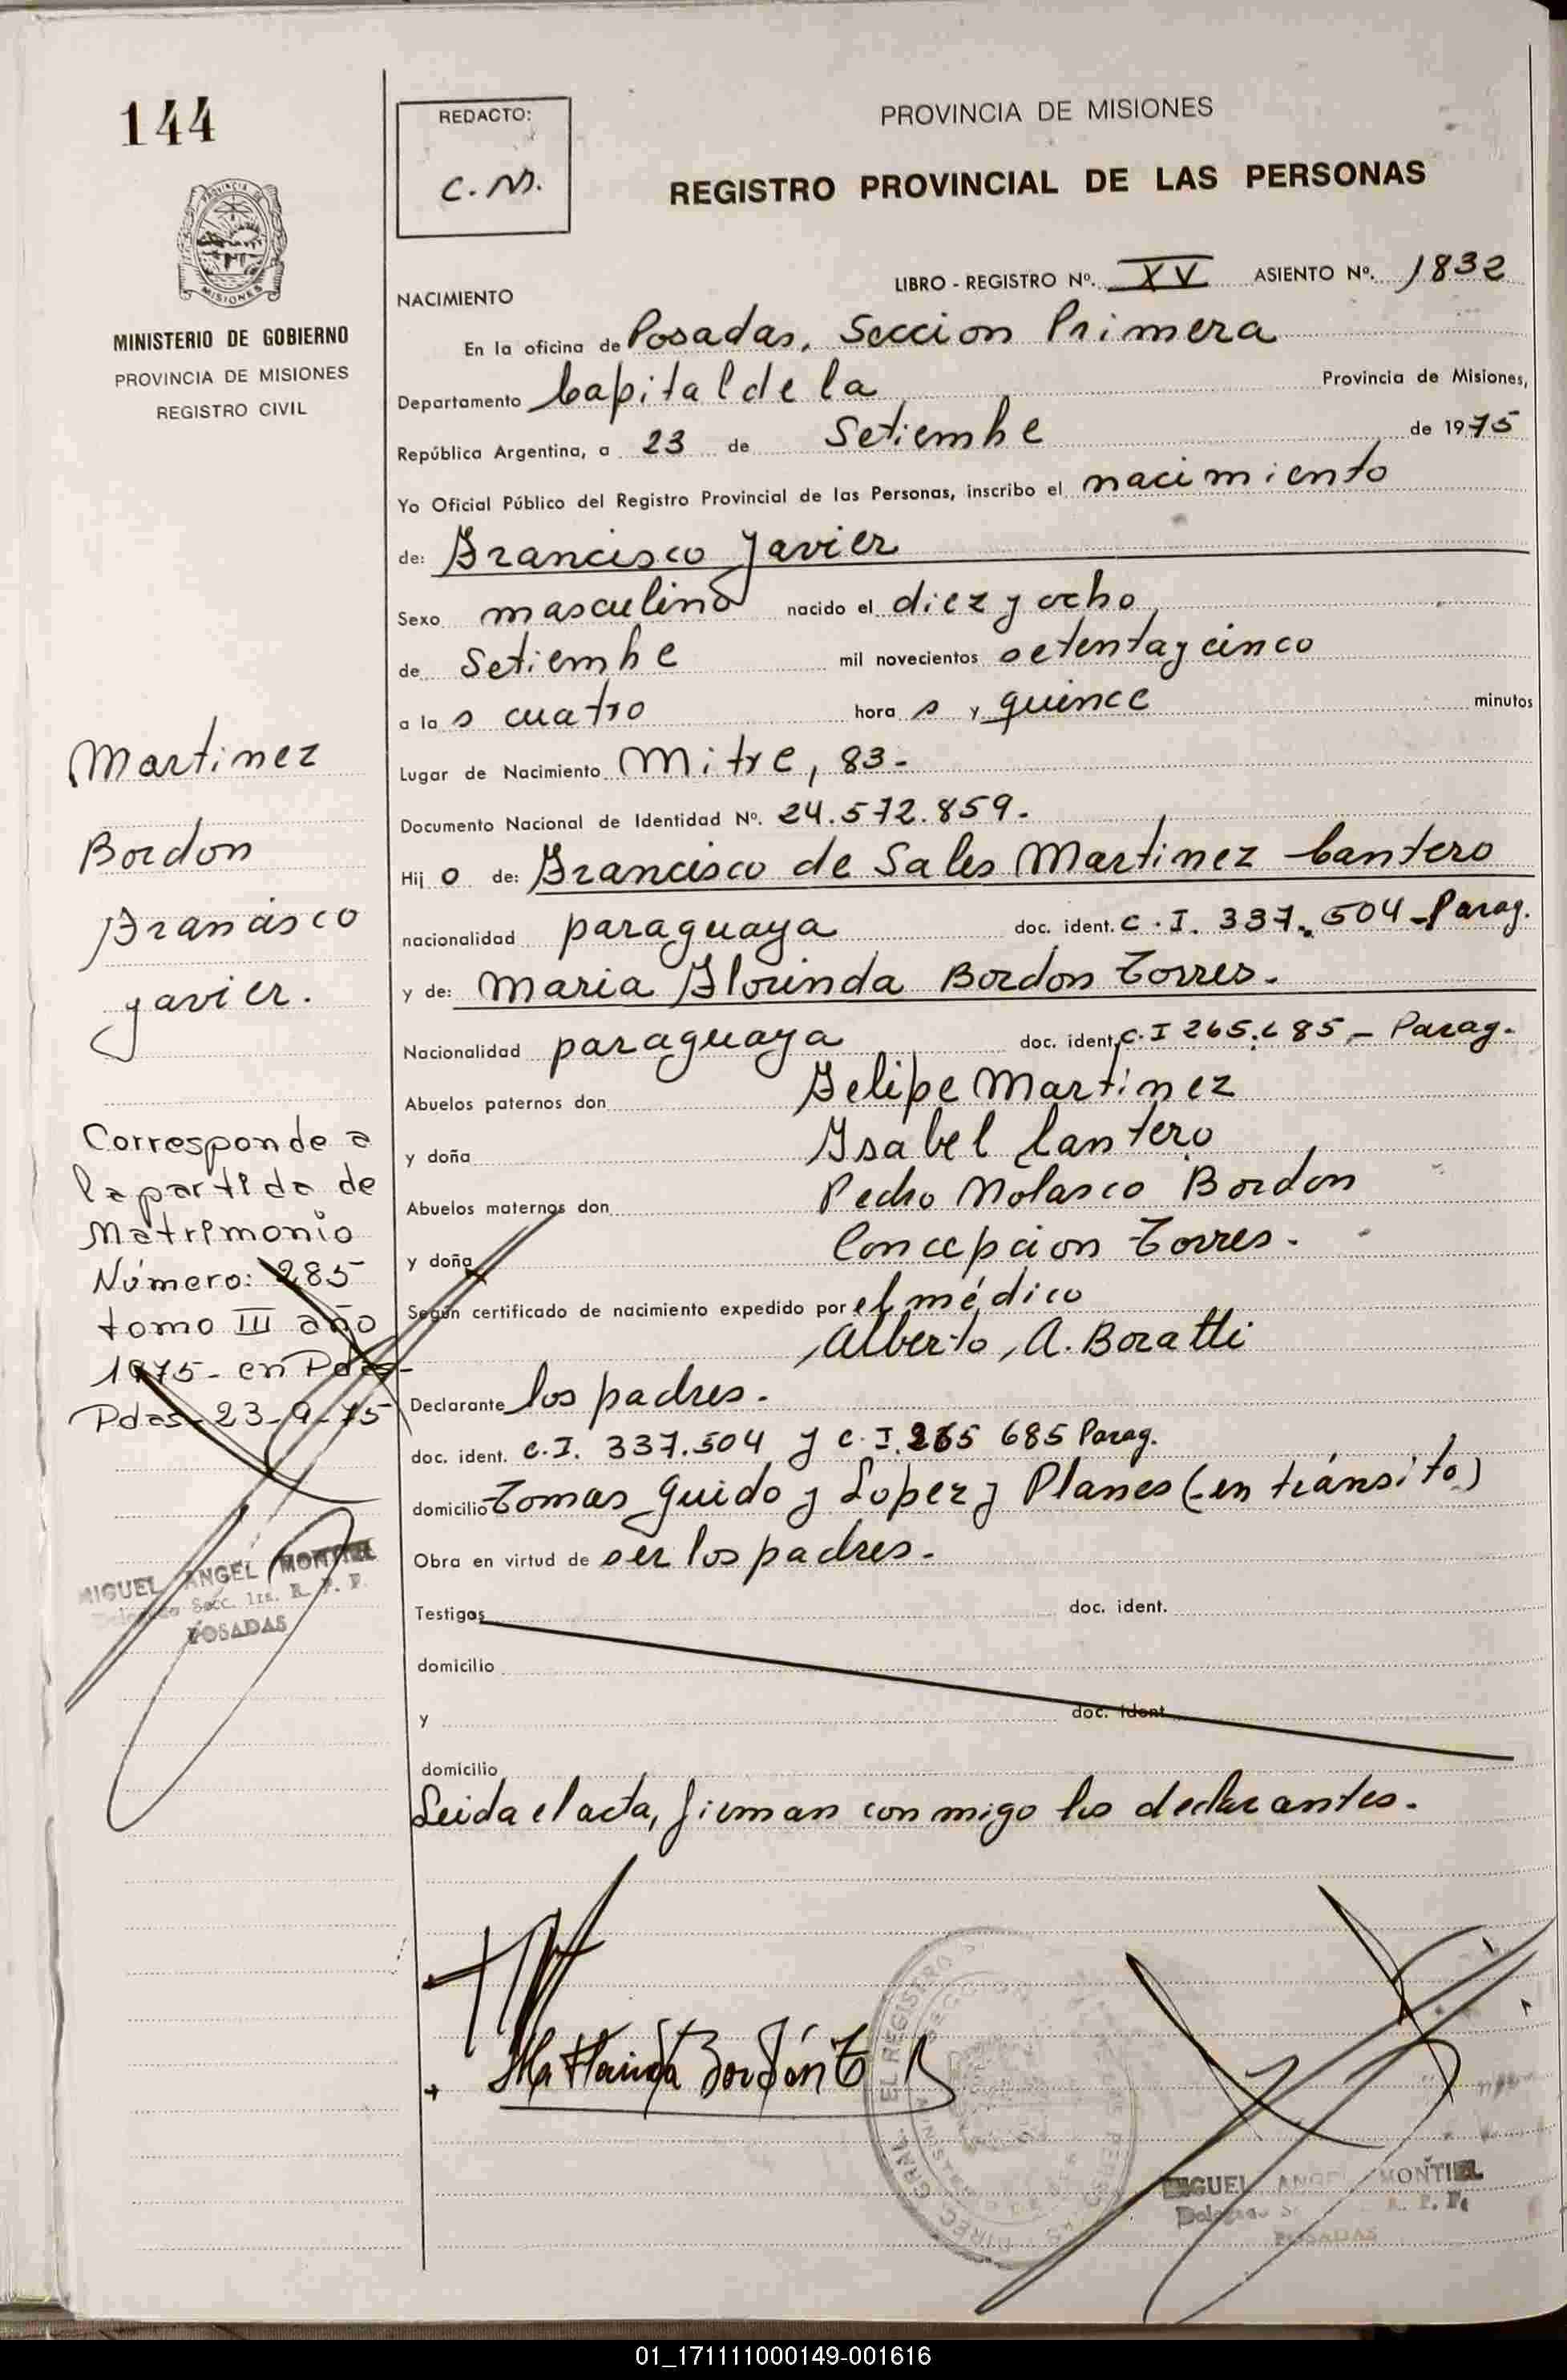 144
PROVINCIA DE MISIONES
MINISTERIO DE GOBIERNO
PROVINCIA DE MISIONES
REGISTRO CIVIL
Martinez
Bordon
Francisco
Javier.
Corresponde a
la partida de
Matrimonio
Número: 285
tomo III año
1975 - en Pdas -
Pdas - 23-9-75
MIGUEL ANGEL MONTIEL
Delegado Secc. 1ra. R. P. P.
POSADAS
REDACTO:
C. M.
PROVINCIA DE MISIONES
REGISTRO PROVINCIAL DE LAS PERSONAS
LIBRO - REGISTRO Nº. XV ASIENTO Nº. 1832
NACIMIENTO
En la oficina de Posadas, Seccion Primera
Departamento Capital de la Provincia de Misiones,
República Argentina, a 23 de Setiembe de 1975
Yo Oficial Público del Registro Provincial de las Personas, inscribo el nacimiento
de: Francisco Javier
Sexo masculino nacido el diez y ocho
de Setiembe mil novecientos setenta y cinco
a la s cuatro hora s y quince minutos
Lugar de Nacimiento Mitre, 83.-
Documento Nacional de Identidad Nº. 24.572.859.-
Hij o de: Francisco de Sales Martinez Cantero
nacionalidad paraguaya doc. ident. C. I. 337.504 - Parag.
y de: Maria Florinda Bordon Torres.-
Nacionalidad paraguaya doc. ident. C. I 265.685 - Parag.
Abuelos paternos don Felipe Martinez
y doña Isabel Cantero
Abuelos maternos don Pedro Nolasco Bordon
y doña Concepcion Torres.-
Según certificado de nacimiento expedido por el médico
Alberto, A. Boratti
Declarante los padres.-
doc. ident. C. I. 337.504 y C. I. 265 685 Parag.
domicilio Tomas Guido y Lopez y Planes (en tránsito)
Obra en virtud de ser los padres.-
Testigos doc. ident.
domicilio
y doc. ident.
domicilio
Leida el acta, firman conmigo los declarantes.-
Ma Florinda Bordón T
MIGUEL ANGEL MONTIEL
R. P. P.
POSADAS
01_171111000149-001616